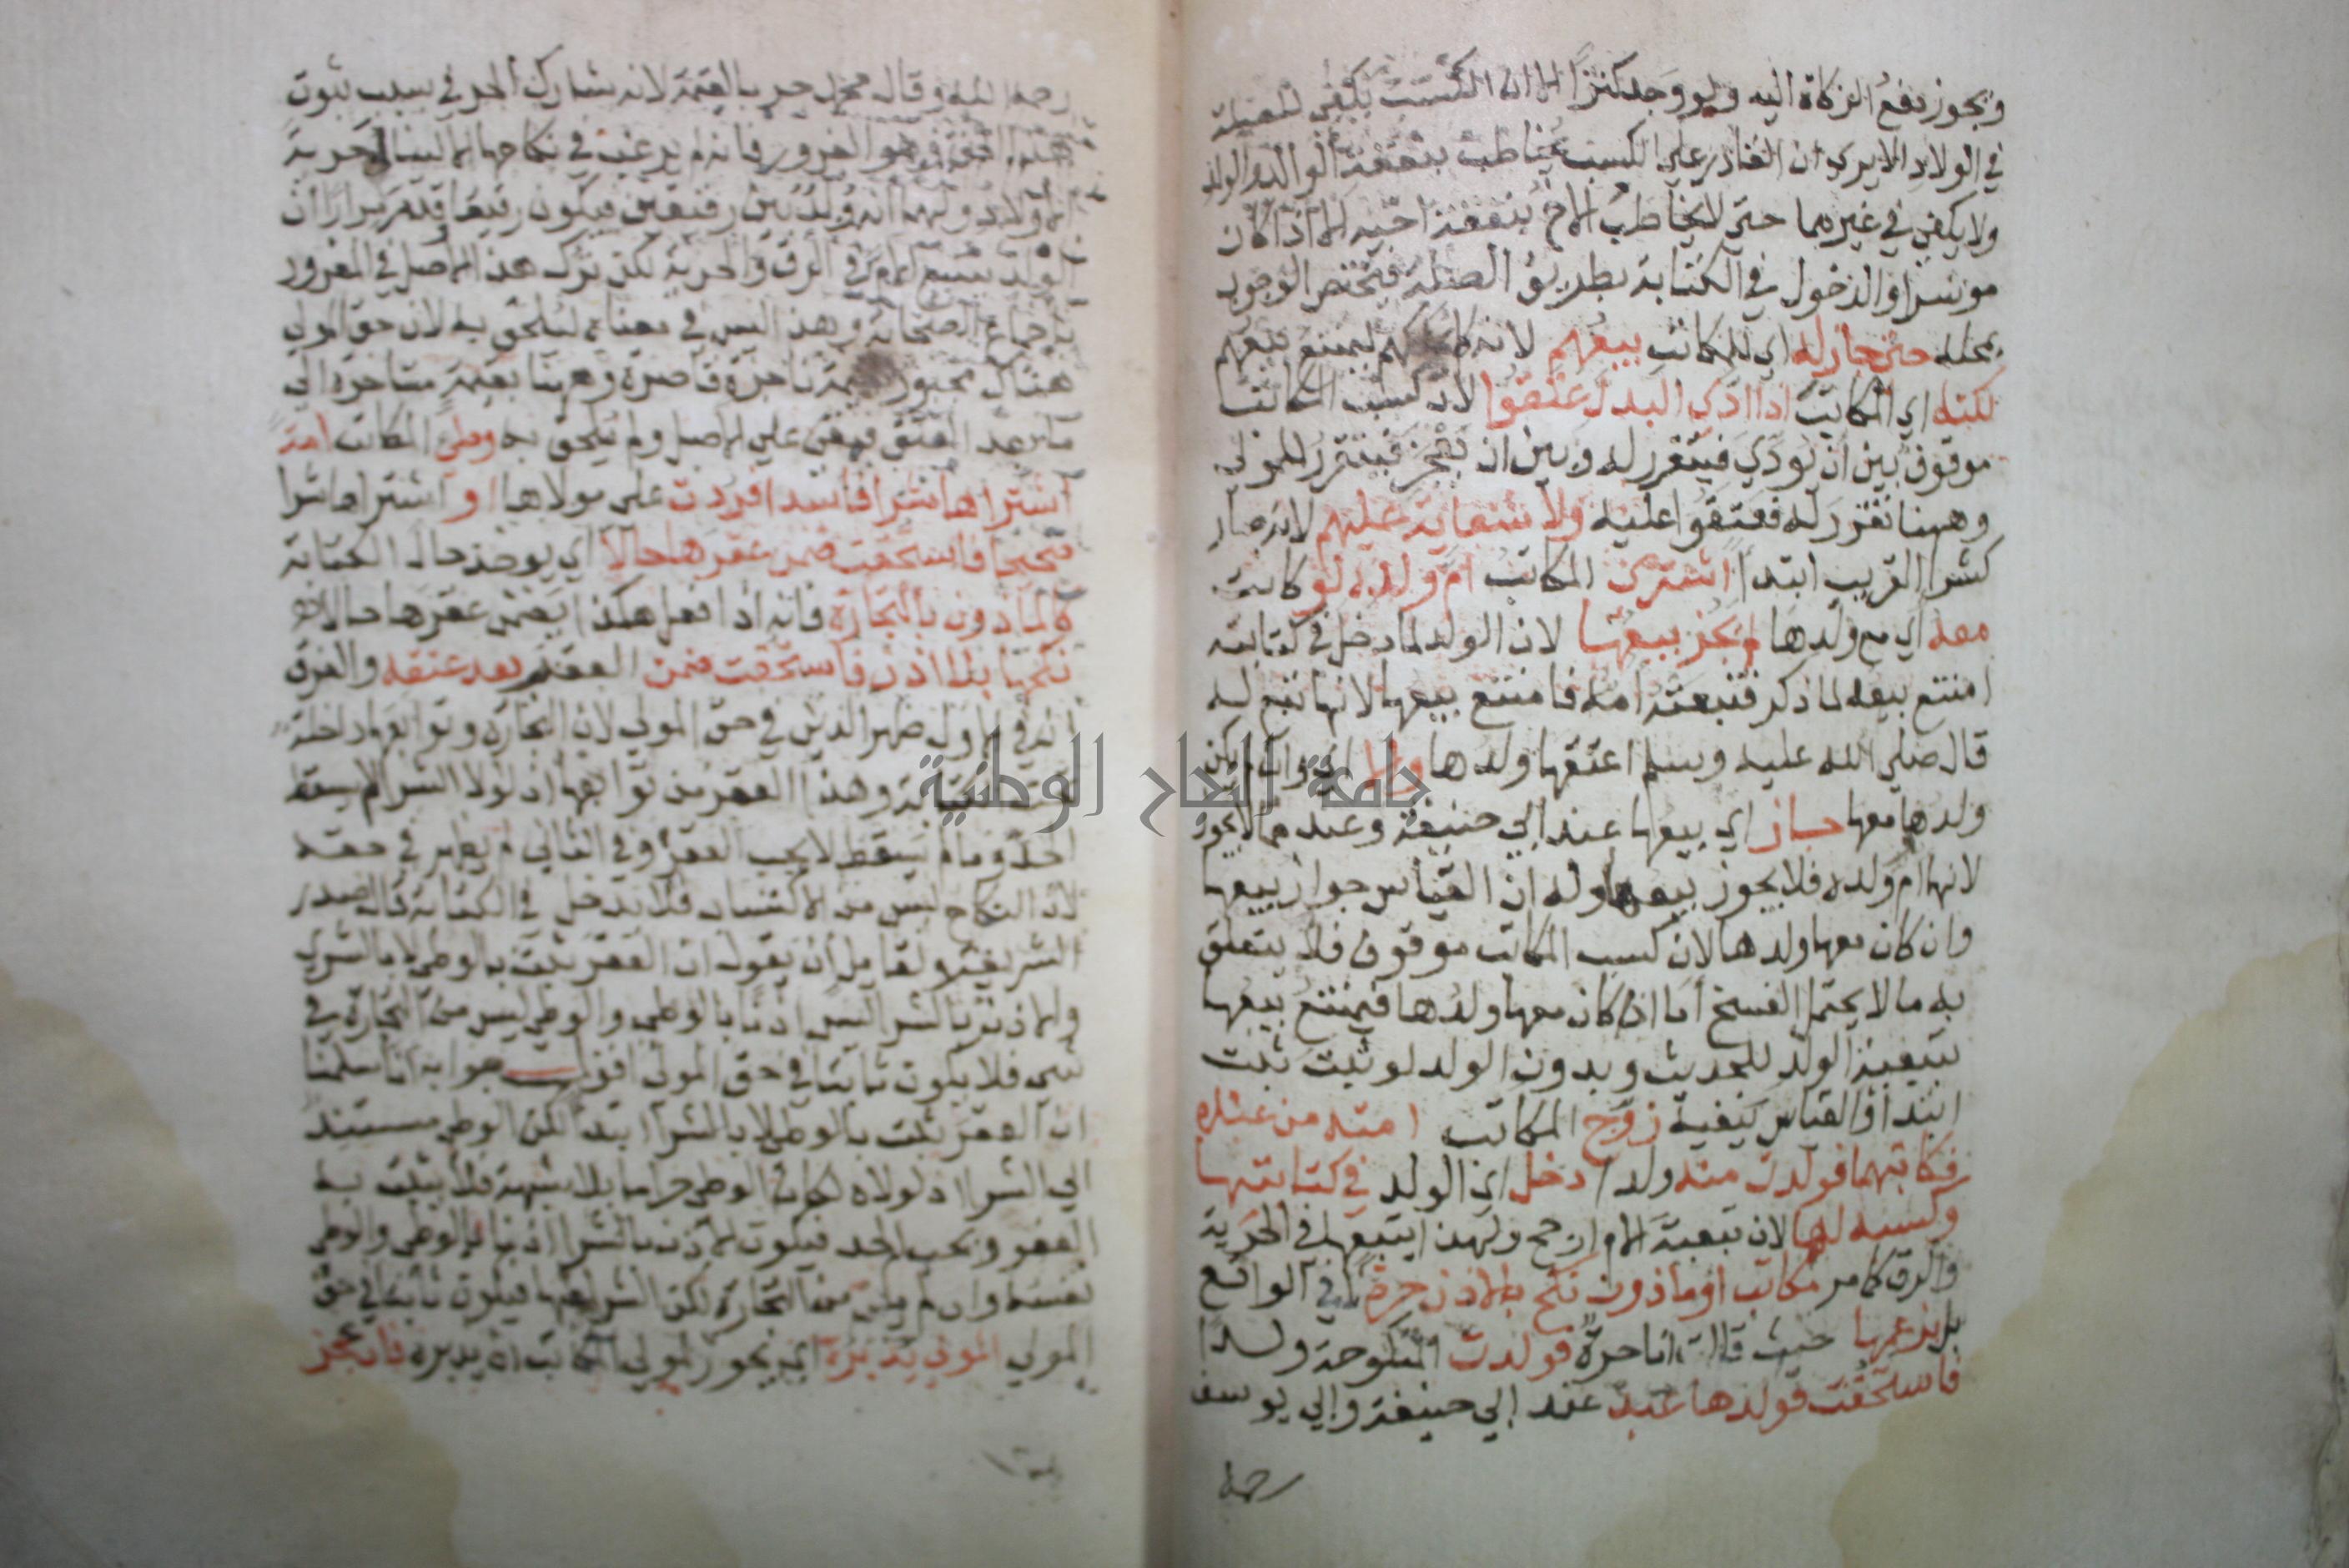 ويجوز دفع الزكاة اليه ولو وجد كنزا الا ان الكسب يكفي للصلة
في الولاد الا يري ان القادر علي الكسب يخاطب بنفقة الوالد والولد
ولا يكفي في غيرهما حتي لا يخاطب الاخ بنفقة اخيه الا اذا كان
موسرا والدخول في الكتابة بطريق الصلة فيختص الوجوب
بمحله حتي جاز له اي للمكاتب بيعهم لانه لم يمتنع بيعهم
لكنه اي المكاتب اذا ادي البدل عتقوا لان كسب المكاتب
موقوف بين ان يودي فيتقرر له وبين ان يعجز فيتقرر للمولي
وههنا تقرر له فعتقوا عليه ولا سعاية عليهم لانه صار
كشرا القريب ابتدا اشتري المكاتب ام ولده لو كانت
معه اي مع ولدها لم يجز بيعها لان الولد لما دخل في كتابته
امتنع بيعه لما ذكر فتبعته امه فامتنع بيعها لانها تبع له
قال صلي الله عليه وسلم اعتقها ولدها والا اي وان لم يكن
ولدها معها جاز اي بيعها عند ابي حنيفة وعندهما لا يجوز
لانها ام ولده فلا يجوز بيعها وله ان القياس جواز بيعها
وان كان معها ولدها لان كسب المكاتب موقوف فلا يتعلق
به ما لا يحتمل الفسخ اما اذا كان معها ولدها فيمتنع بيعها
بتبعية الولد للحديث وبدون الولد لو ثبت ثبت
ابتدا والقياس ينفيه زوج المكاتب امته من عبده
فكاتبهما فولدت منه ولدا دخل اي الولد في كتابتها
وكسبه لها لان تبعية الام ارجح ولهذا يتبعها في الحرية
والرق كما مر مكاتب او ماذون نكح بالاذن حرة لا في الواقع
بل بزعمها حيث قالت انا حرة فولدت المنكوحة ولدا
فاستحقت فولدها عبد عند ابي حنيفة وابي يوسف
رحمه
رحمه الله وقال محمد حر بالقيمة لانه شارك الحر في سبب ثبوت
هذا الحق وهو الغرور فانه لم يرغب في نكاحها الا لينال حرية
الاولاد ولهما انه ولد بين رقيقين فيكون رقيقا قد مر مرارا ان
الولد يتبع الام في الرق والحرية لكن ترك هذا الاصل في المغرور
باجماع الصحابة وهذا ليس في معناه ليلحق به لان حق المولي
هناك مجبور بقيمة ناجزة وههنا بقيمة متاخرة الي
ما بعد العتق فبقي علي الاصل ولم يلحق به وطئ المكاتب امة
اشتراها شرا فاسدا فردت علي مولاها او اشتراها شرا
صحيحا فاستحقت ضمن عقرها حالا اي يوخذ حال الكتابة
كالماذون بالتجارة فانه اذا فعل هكذا يضمن عقرها حالا
نكحها بلا اذن فاستحقت ضمن العقر بعد عتقه والفرق
انه في الاول ظهر الدين في حق المولي لان التجارة وتوابعها داخلة
تحت الكتابة وهذا العقر من توابعها اذ لولا الشرا لم يسقط
الحد وما لم يسقط لا يجب العقر وفي الثاني لم يظهر في حقه
لان النكاح ليس من الاكتساب فلا يدخل في الكتابة قال صدر
الشريعة ولقايل ان يقول ان العقر يثبت بالوطي لا بالشري
والاذن بالشرا ليس اذنا بالوطي والوطي ليس من التجارة في
شي فلا يكون ثابتا في حق المولي اقول جوابه انا سلمنا
ان العقر يثبت بالوطي لا بالشرا ابتدا لكن الوطي مستند
الي الشرا اذ لولاه لكان الوطي حراما بلا شبهة فلا يثبت به
العقر ويجب الحد فيكون الاذن بالشرا اذنا بالوطي والوطي
نفسه وان لم يكن من التجارة لكن الشرا منها فيكون ثابتا في حق
المولي يجوز لمولي المكاتب ان يدبره فان عجز
جامعة النجاح الوطنية